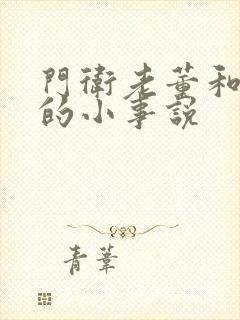 門衛老董和
的小事説
青葦